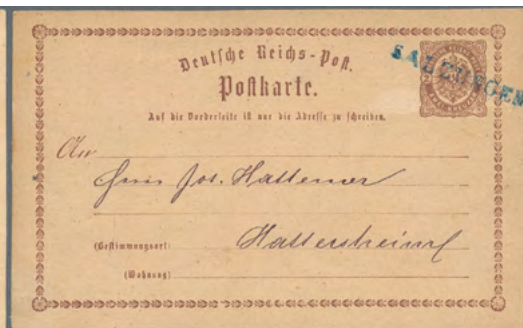 Deutsche Reichs-Post.
SALZUNGEN
Postkarte.
Auf die Vorderseite ist nur die Adresse zu schreiben.
An
Herrn Jos. Hattemer
(Bestimmungsort:
Hattersheim
(Wohnung)